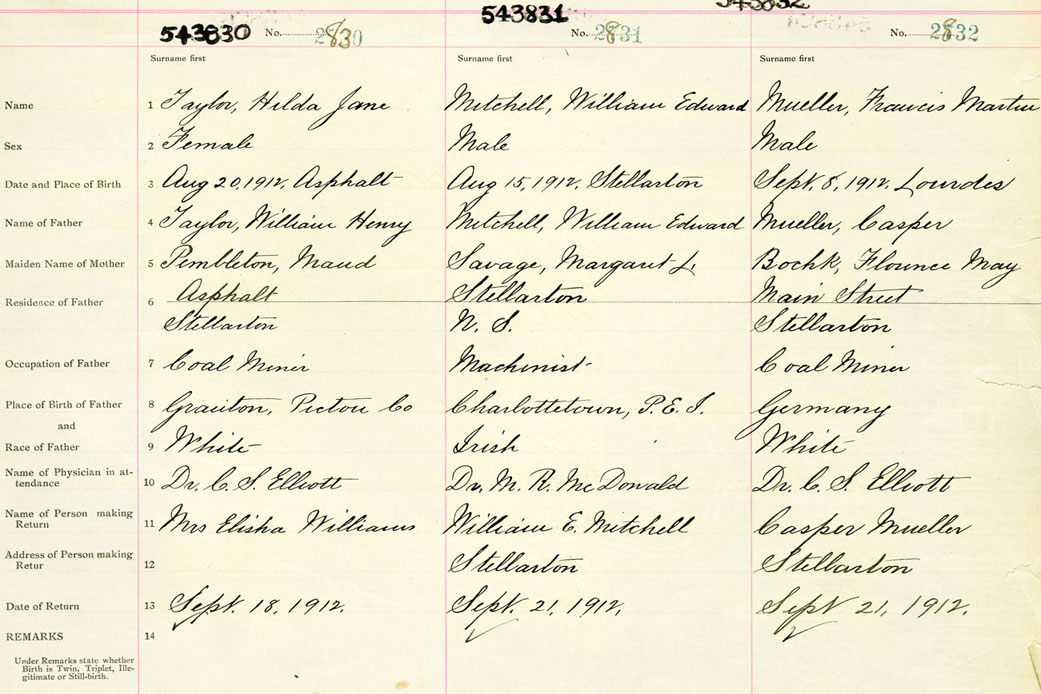 543830 No. 2830 543831 No. 2831 No. 2832
Surname first Surname first Surname first
Name 1 Taylor, Hilda Jane Mitchell, William Edward Mueller, Francis Martin
Sex 2 Female Male Male
Date and Place of Birth 3 Aug 20, 1912, Asphalt Aug 15, 1912, Stellarton Sept. 8, 1912, Lourdes
Name of Father 4 Taylor, William Henry Mitchell, William Edward Mueller, Casper
Maiden Name of Mother 5 Pembleton, Maud Savage, Margaret L. Florence May
Residence of Father 6 Asphalt Stellarton Main Street
Stellarton N. S. Stellarton
Occupation of Father 7 Coal Miner Machinist Coal Miner
Place of Birth of Father 8 Pictou Co Charlottetown, P. E. I. Germany
and
Race of Father 9 White Irish White
Name of Physician in at-
tendance 10 Dr. C. S. Elliott Dr. M. R. McDonald Dr. C. S. Elliott
Name of Person making
Return 11 Mrs Elisha Williams William E. Mitchell Casper Mueller
Address of Person making
Retur 12 Stellarton Stellarton
Date of Return 13 Sept. 18, 1912. Sept. 21, 1912. Sept 21, 1912.
REMARKS 14
Under Remarks state whether
Birth is Twin, Triplet, Ille-
gitimate or Still-birth.